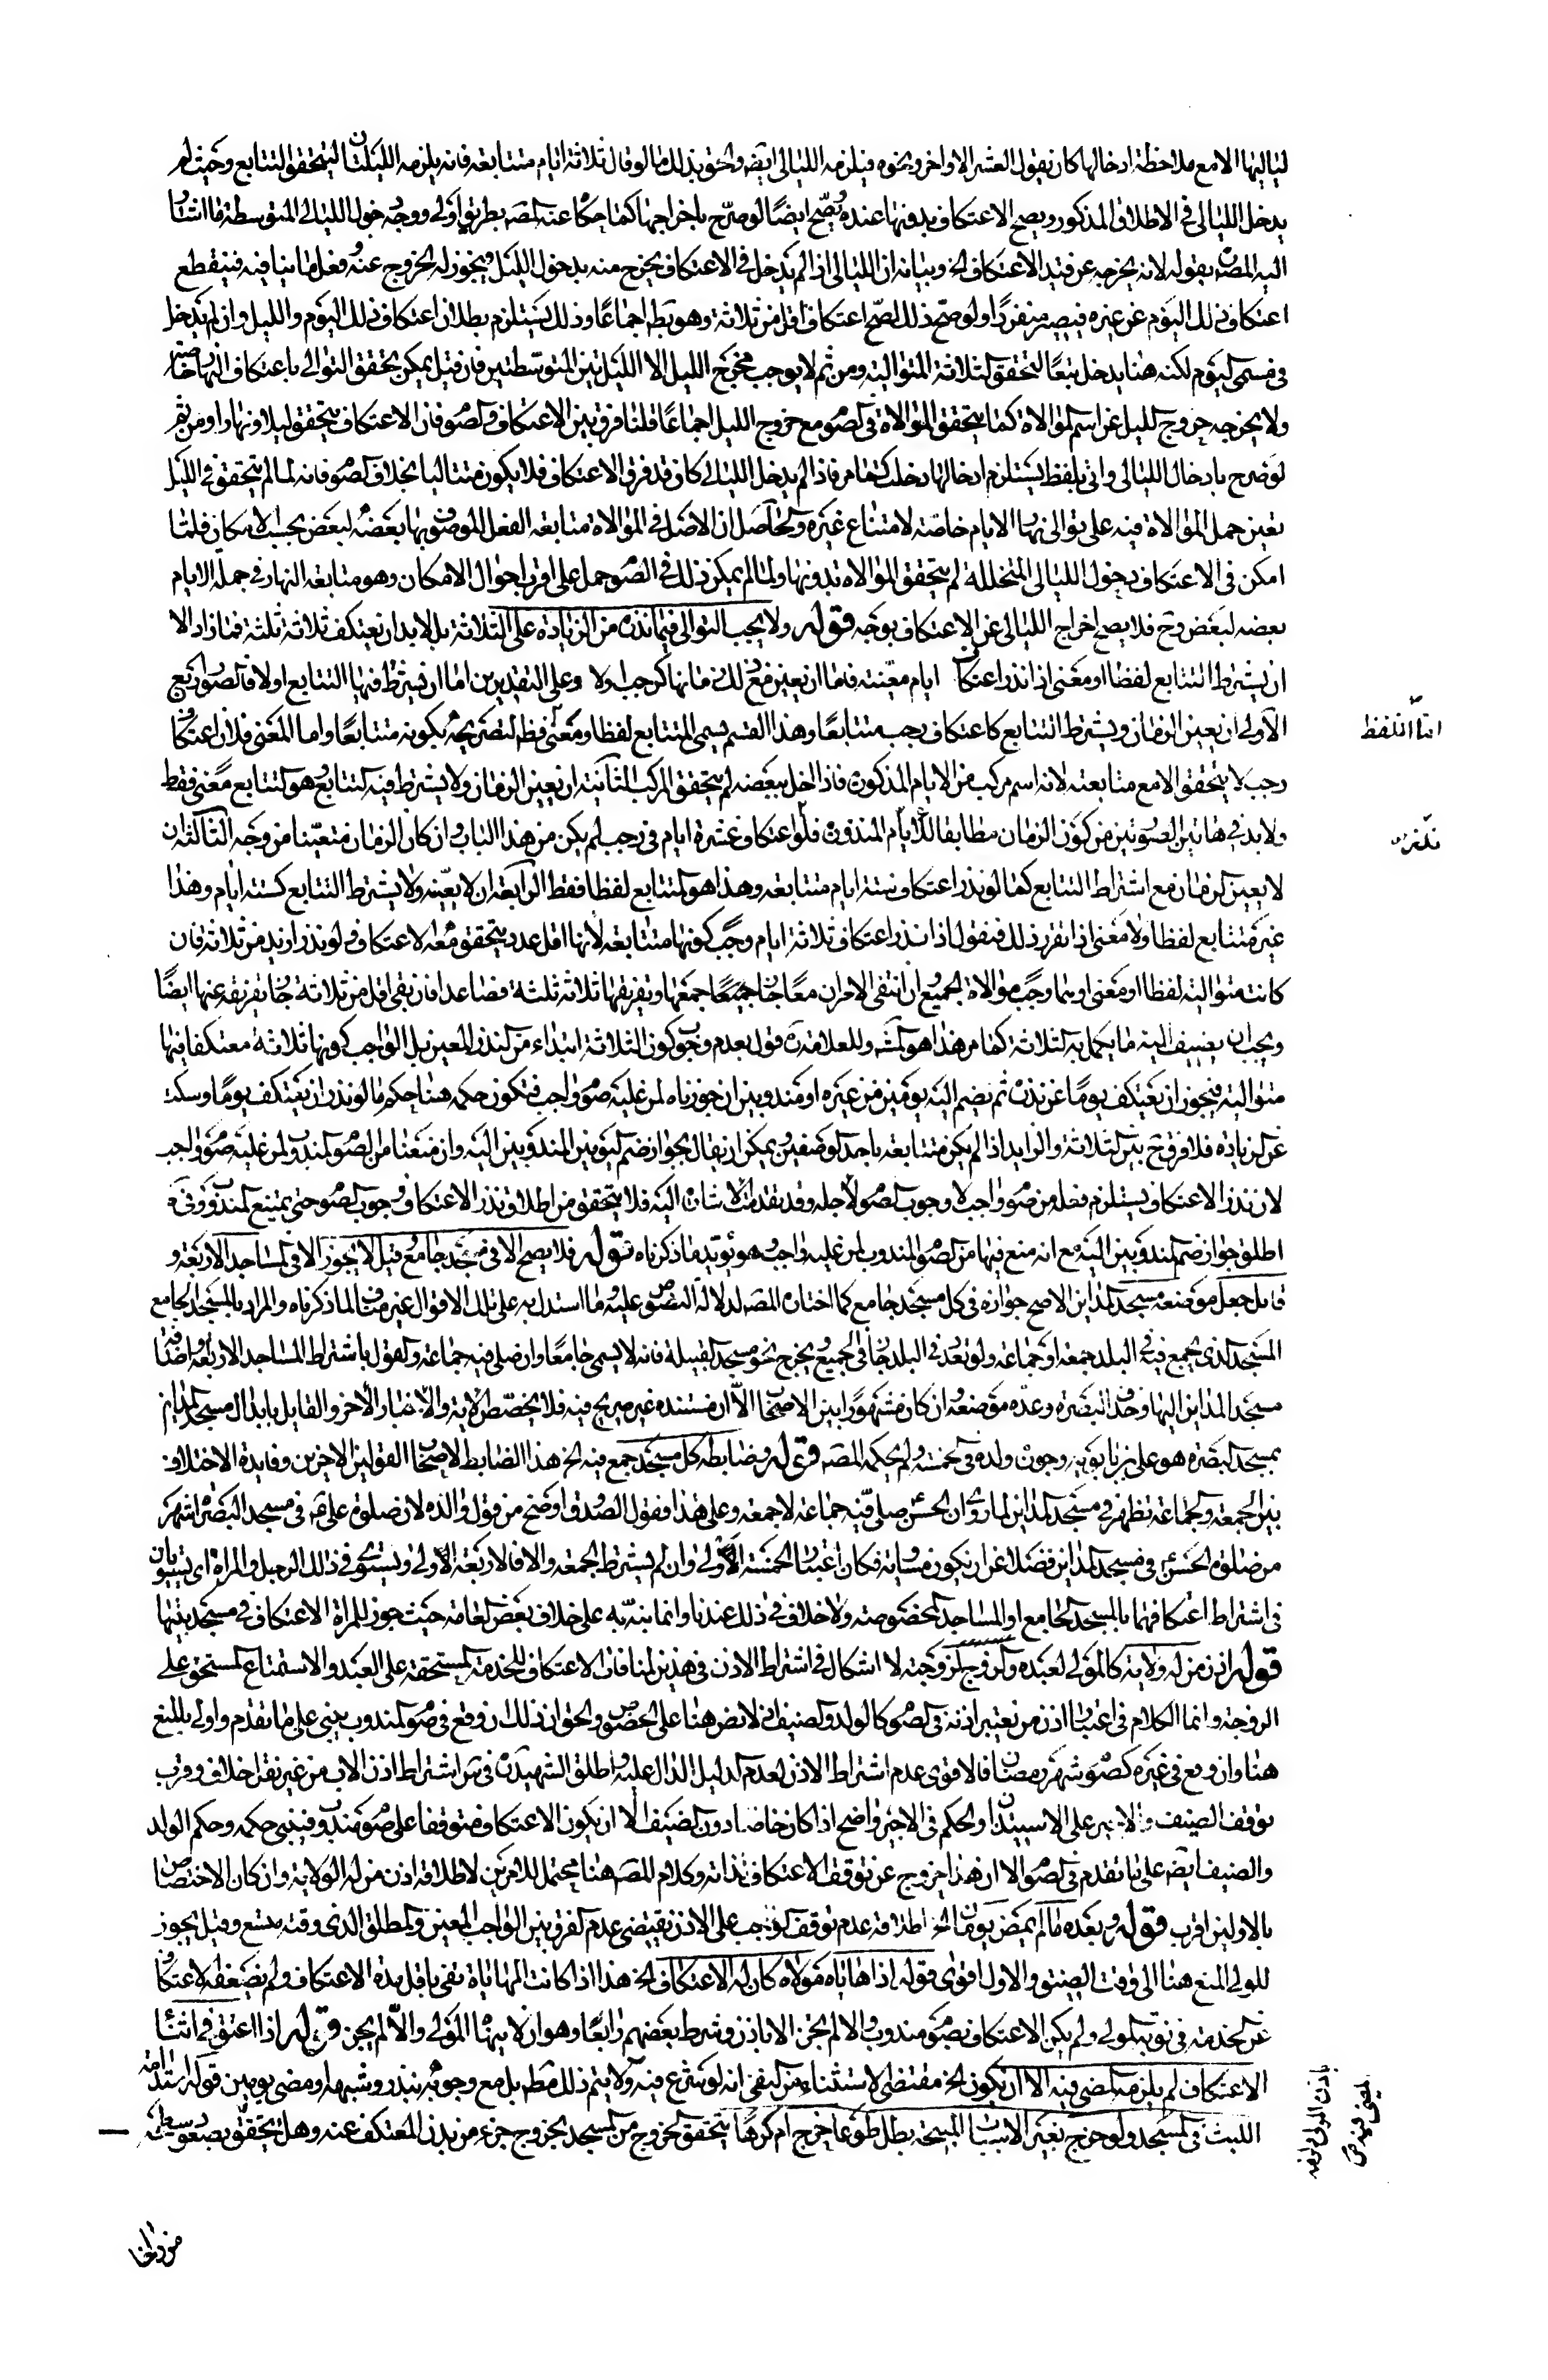 لياليها الا مع ملاحظة ادخالها كان يقول العشر الاواخر ونحوه فيلزمه الليالى ايضا والحق بذلك ما لو قال ثلاثة ايام متتابعة فانه يلزمه الليلتان ليتحقق التتابع وحيث لم
يدخل الليالى فى الاطلاق المذكور ويصح الاعتكاف بدونها عنده يصح ايضًا لو صرّح باخراجها كما حكاه عنه المصـ بطريق اولى ووجه دخول الليالى المتوسطة ما اشار
اليه المصنف بقوله لانه يخرجه عن قيد الاعتكاف الخ وبيانه ان الليالى اذا لم تدخل فى الاعتكاف يخرج منه بدخول الليل فيجوز له الخروج عنه وفعل ما ينافيه فينقطع
اعتكاف ذلك اليوم عن غيره فيصير منفردًا ولو صح ذلك لصح اعتكاف اقل من ثلاثة وهو بط اجماعًا وذلك يستلزم بطلان اعتكاف ذلك اليوم والليل وان لم يدخل
فى مسمى اليوم لكنه هنا يدخل تبعًا لتحقق الثلاثة المتوالية ومن ثم لا يوجب مخرج الليل الا الليلتين المتوسطتين فان قيل يمكن تحقق التوالى باعتكاف النهار خاصة
ولا يخرجه خروج الليل عن اسم الموالاة كما يتحقق الموالاة فى الصوم مع خروج الليل اجماعًا قلنا فرق بين الاعتكاف والصوم فان الاعتكاف يتحقق ليلا ونهارا ومن ثم
لو صرح بادخال الليالى واتى بلفظ يستلزم ادخالها دخلت كما مر فاذا لم يدخل الليالى كان قد فرق الاعتكاف فلا يكون متتاليا بخلاف الصوم فانه لما لم يتحقق فى الليل
تعين حمل الموالاة فيه على توالى نهار الايام خاصة لامتناع غيره والحاصل ان الاصل فى الموالاة متابعة الفعل الموصوف بها بعضه لبعض بحسب الامكان فلما
امكن فى الاعتكاف دخول الليالى المتخللة لم يتحقق الموالاة بدونها ولما لم يمكن ذلك فى الصوم حمل على اقرب احوال الامكان وهو متابعة النهار فى جملة الايام
بعضه لبعض وح فلا يصح اخراج الليالى عن الاعتكاف بوجه قوله ولا يجب التوالى فيما نذره من الزيادة على الثلاثة بل لا بد ان يعتكف ثلاثة ثلثة فما زاد الا
ان يشترط التتابع لفظا او معنى اذا نذر اعتكاف ايام معينة فاما ان يعين مع ذلك زمانها كرجب او لا وعلى التقديرين اما ان يشترط فيها التتابع او لا فالصور اربع
الاولى ان يعين الزمان ويشترط التتابع كاعتكاف رجب متتابعًا وهذا القسم يسمى المتتابع لفظا ومعنى فظ لتصريحه بكونه متتابعًا واما المعنى فلان اعتكاف
رجب لا يتحقق الا مع متابعته لانه اسم مركب من الايام المذكورة فاذا اخل ببعضه لم يتحقق المركب الثانية ان يعين الزمان ولا يشترط فيه التتابع وهو المتتابع معنى فقط
ولا بد فى هاتين الصورتين من كون الزمان مطابقا للايام المنذورة فلو اعتكاف عشرة ايام فى رجب لم يكن من هذا الباب وان كان الزمان متعينا من وجه الثالثة ان
لا يعين الزمان مع اشتراط التتابع كما لو نذر اعتكاف ستة ايام متتابعة وهذا هو المتتابع لفظا فقط الرابعة ان لا يعينه ولا يشترط التتابع كستة ايام وهذا
غير متتابع لفظا ولا معنى اذا تقرر ذلك فنقول اذا نذر اعتكاف ثلاثة ايام وجب كونها متتابعة لانها اقل عدد يتحقق معه الاعتكاف ولو نذر ازيد من ثلاثة فان
كانت متوالية لفظا او معنى او بهما وجب موالاة الجميع ان انتفى الامران معًا جاز جميعًا جمعها وتفريقها ثلاثة ثلثة فصاعدا فان بقى اقل من ثلاثة جاز تفريقه عنها ايضًا
ويجب ان يضيف اليه ما يكمل به الثلاثة كما مر هذا هو المشهور وللعلامة ره قول بعدم وجوب كون الثلاثة ابتداء من النذر المعين بل الواجب كونها ثلاثة معتكفا فيها
متوالية فيجوز ان يعتكف يومًا عن نذره ثم يضم اليه يومين من غيره او مندوبين ان جوزناه لمن عليه صوم واجب فتكون حكمه هنا حكم ما لو نذر ان يعتكف يومًا وسكت
عن الزيادة فلا فرق ح بين الثلاثة والزايد اذا لم يكن متتابعة باحد الوصفين ويمكن ان يقال بجواز ضم اليومين المندوبين اليه وان منعنا من الصوم المندوب لمن عليه صوم واجب
لان نذر الاعتكاف يستلزم فعله من صوم واجب لا وجوب الصوم لاجله وقد تقدمت الاشارة اليه فلا يتحقق من اطلاق نذر الاعتكاف وجوب الصوم حتى يمتنع المندوب وفى
اطلق جواز ضم المندوبين اليه مع انه منع فيها من الصوم المندوب لمن عليه واجب وهو يؤيد ما ذكرناه قوله فلا يصح الا فى مسجد جامع قيل لا يجوز الا فى المساجد الاربعة و
قايل جعل موضعه مسجد المداين الاصح جوازه فى كل مسجد جامع كما اختاره المصـ لدلالة النصوص عليه وما استدل به على تلك الاقوال غير مناف لما ذكرناه والمراد بالمسجد الجامع
المسجد الذى يجمع فيه فى البلد جمعة او جماعة ولو تعدد فى البلد جاز فى الجميع ويخرج نحو مسجد القبيلة فانه لا يسمى جامعًا وان صلى فيه جماعة والقول باشتراط المساجد الاربعة باضافة
مسجد المداين اليها وحذف البصرة وعده موضعه ان كان مشهورًا بين الاصحاب الا ان مستنده غير صريح فيه فلا يخصص الاية والاخبار الاخر والقايل بابدال مسجد المداين
بمسجد البصرة هو على بن بابويه وجوزه ولده فى الخمسة ولم يحكه المصـ قوله وضابطه كل مسجد جمع فيه الخ هذا الضابط لاصحاب القولين الاخيرين وفايدة الاختلاف
بين الجمعة والجماعة تظهر فى مسجد المداين لما روى ان الحسن صلى فيه جماعة لا جمعة وعلى هذا فقول الصدوق اوضح من قول والده لان صلوة على ع فى مسجد البصرة اشهر
من صلوة الحسن ع فى مسجد المداين فضلا عن ان يكون مساويه فكان اعتبار الخمسة الاولى وان لم يشترط الجمعة والا فالاربعة الاولى ويستوى فى ذلك الرجل والمراة اى يستويان
فى اشتراط اعتكافهما بالمسجد الجامع او المساجد المخصوصة ولا خلاف فى ذلك عندنا وانما نبه به على خلاف بعض العامة حيث جوز للمراة الاعتكاف فى مسجد بيتها
قوله اذن من له ولاية كالمولى لعبده والزوج لزوجته لا اشكال فى اشتراط الاذن فى هذين لمنافات الاعتكاف للخدمة المستحقة على العبد والاستمتاع المستحق على
الزوجة وانما الكلام فى اعتبار اذن من يعتبر اذنه فى الصوم كالولد والضيف اذ لا نص هنا على الخصوص والحق ان ذلك ان وقع فى صوم مندوب يبنى على ما تقدم واولى بالمنع
هنا وان وقع فى غيره كصوم شهر رمضان فالاقوى عدم اشتراط الاذن لعدم الدليل الدال عليه واطلق الشهيد ره فى س اشتراط اذن الاب من غير نقل خلاف وقرب
توقف الضيف والاجير على الاستيذان والحكم فى الاجير واضح اذا كان خاصا دون الضيف الا ان يكون الاعتكاف متوقفا على صوم مندوب فيبنى حكمه وحكم الولد
والضيف ايضا على ما تقدم فى الصوم الا ان هذا خروج عن توقف الاعتكاف بذاته وكلام المصـ هنا محتمل للامرين لاطلاقه اذن من له الولاية وان كان الاختصاص
بالاولين اقرب قوله وبعده ما لم يمض يومان الخ اطلاقه عدم توقف الواجب على الاذن يقتضى عدم الفرق بين الواجب المعين والمطلق الذى وقته متسع وقيل يجوز
للولى المنع هنا الى وقت الضيق والاول اقوى قوله اذا هاياه مولاه كان له الاعتكاف الخ هذا اذا كانت المهاياة تفى باقل مدة الاعتكاف ولم يضعفه الاعتكاف
عن الخدمة فى نوبة المولى ولم يكن الاعتكاف بصوم مندوب والا لم يجز الا باذن وشرط بعضهم رابعًا وهو ان لا ينهاه المولى والا لم يجز قوله اذا اعتق فى اثناء
الاعتكاف لم يلزمه المضى فيه الا ان يكون الخ مقتضى الاستثناء من النفى انه لو شرع فيه ولا يتم ذلك مط بل مع وجوبه بنذر وشبهه او مضى يومين قوله استدامة
اللبث فى المسجد ولو خرج بغير الاسباب المبيحة بطل طوعا خرج ام كرهًا يتحقق الخروج من المسجد بخروج جزء من بدن المعتكف عنه وهل يتحقق بصعود سطحه
اما اللفظ